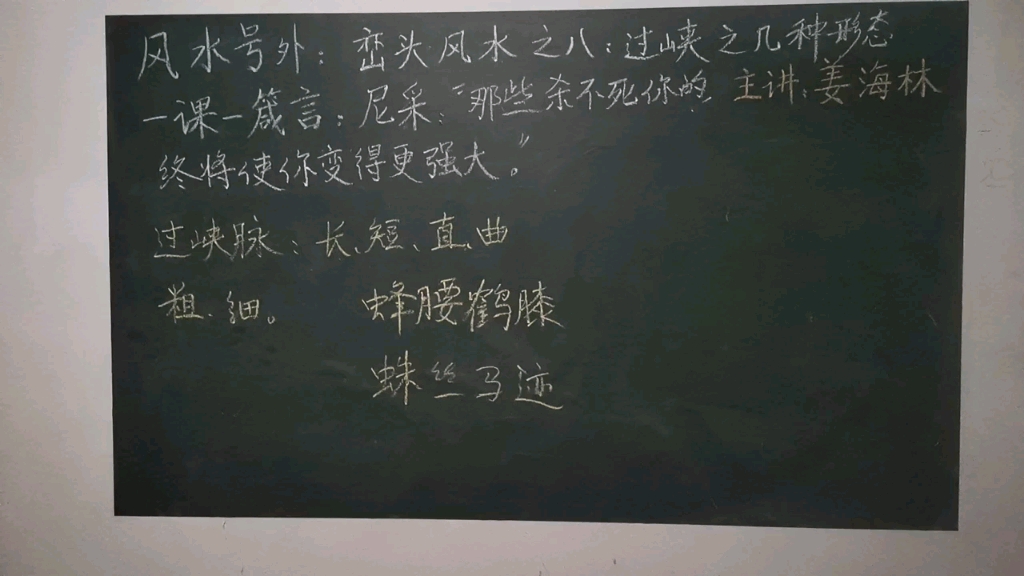 风水号外：峦头风水之八：过峡之几种形态
一课一箴言：尼采：“那些杀不死你的 主讲：姜海林
终将使你变得更强大。”
过峡脉：长、短、直、曲
粗、细。 蜂腰鹤膝
蛛丝马迹